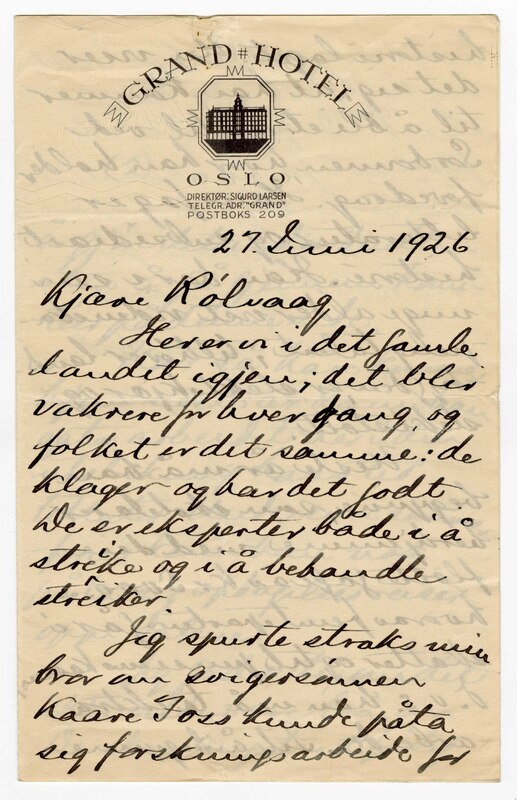 GRAND HOTEL
OSLO
DIREKTØR: SIGURD LARSEN
TELEGR. ADR. "GRAND"
POSTBOKS 209
27. Juni 1926
Kjære Rølvaag
Her er vi i det gamle
landet igjen; det blir
vakrere for hver gang, og
folket er det samme: de
klager og har det godt.
De er eksperter både i å
streike og i å behandle
streiker.
Jeg spurte straks min
bror om svigersønnen
Kaare Foss kunde påta
sig forskningsarbeide for